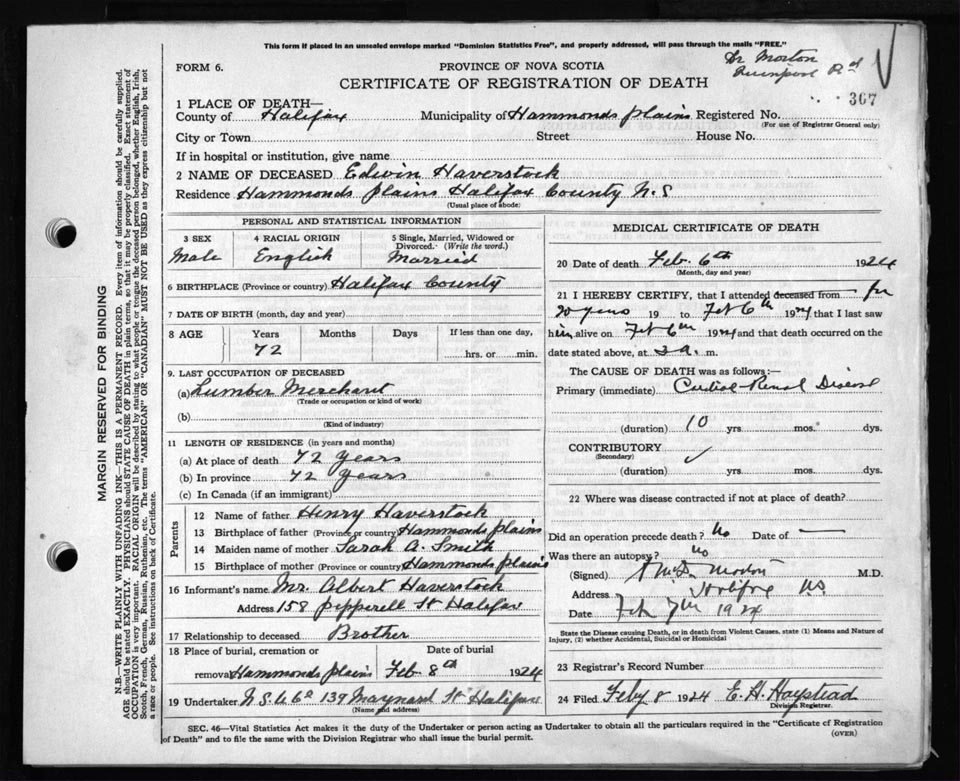 This form if placed in an unsealed envelope marked "Dominion Statistics Free", and properly addressed, will pass through the mails "FREE."
Dr Morton
Rd
FORM 6.
PROVINCE OF NOVA SCOTIA
CERTIFICATE OF REGISTRATION OF DEATH
367
1 PLACE OF DEATH—
County of Halifax Municipality of Hammonds plains Registered No.
(For use of Registrar General only)
City or Town Street House No.
If in hospital or institution, give name
2 NAME OF DECEASED Edwin Haverstock
Residence Hammonds plains Halifax County N.S
(Usual place of abode)
PERSONAL AND STATISTICAL INFORMATION
3 SEX 4 RACIAL ORIGIN 5 Single, Married, Widowed or Divorced. (Write the word.)
Male English Married
6 BIRTHPLACE (Province or country) Halifax County
7 DATE OF BIRTH (month, day and year)
8 AGE Years Months Days If less than one day,
72 hrs. or min.
9. LAST OCCUPATION OF DECEASED
(a) Lumber Merchant
(Trade or occupation or kind of work)
(b)
(Kind of industry)
11 LENGTH OF RESIDENCE (in years and months)
(a) At place of death 72 years
(b) In province 72 years
(c) In Canada (if an immigrant)
Parents
12 Name of father Henry Haverstock
13 Birthplace of father (Province or country) Hammonds plains
14 Maiden name of mother Sarah A. Smith
15 Birthplace of mother (Province or country) Hammonds plains
16 Informant's name Mr. Albert Haverstock
Address 158 Pepperell St Halifax
17 Relationship to deceased Brother
18 Place of burial, cremation or Date of burial
removal Hammonds plains Feb 8th 1924
19 Undertaker N.S.U Co 139 Maynard St Halifax
(Name and address)
MEDICAL CERTIFICATE OF DEATH
20 Date of death Feb. 6th 1924
(Month, day and year)
21 I HEREBY CERTIFY, that I attended deceased from for
20 years 19 to Feb 6th 1924 that I last saw
him alive on Feb 6th 1924 and that death occurred on
date stated above, at 3 a. m.
The CAUSE OF DEATH was as follows:—
Primary (immediate) Renal Disease
(duration) 10 yrs. mos. dys.
CONTRIBUTORY
(Secondary)
(duration) yrs. mos. dys.
22 Where was disease contracted if not at place of death?
Did an operation precede death? No Date of
Was there an autopsy? No
(Signed) Morton M.D.
Address Halifax NS
Date Feb 7th 1924
State the Disease causing Death, or in death from Violent Causes, state (1) Means and Nature of
Injury, (2) whether Accidental, Suicidal or Homicidal
23 Registrar's Record Number
24 Filed Feby 8 1924 E. H. Haystead
Division Registrar.
SEC. 46—Vital Statistics Act makes it the duty of the Undertaker or person acting as Undertaker to obtain all the particulars required in the "Certificate of Registration
of Death" and to file the same with the Division Registrar who shall issue the burial permit.
(OVER)
MARGIN RESERVED FOR BINDING
N.B.—WRITE PLAINLY WITH UNFADING INK—THIS IS A PERMANENT RECORD. Every item of information should be carefully supplied.
AGE should be stated EXACTLY. PHYSICIANS should STATE CAUSE OF DEATH in plain terms, so that it may be properly classified. Exact statement of
OCCUPATION is very important. RACIAL ORIGIN will be described by stating to what people or tongue the deceased person belonged, whether English, Irish,
Scotch, French, German, Russian, Ruthenian, etc. The terms "AMERICAN" OR "CANADIAN" MUST NOT BE USED as they express citizenship but not
a race or people. See instructions on back of Certificate.